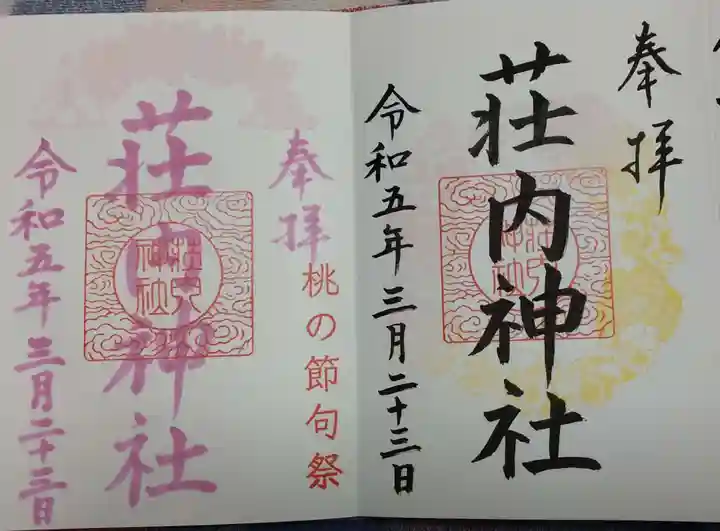 奉拝
荘内神社
令和五年三月二十三日
桃の節句祭
奉拝
荘内神社
令和五年三月二十三日